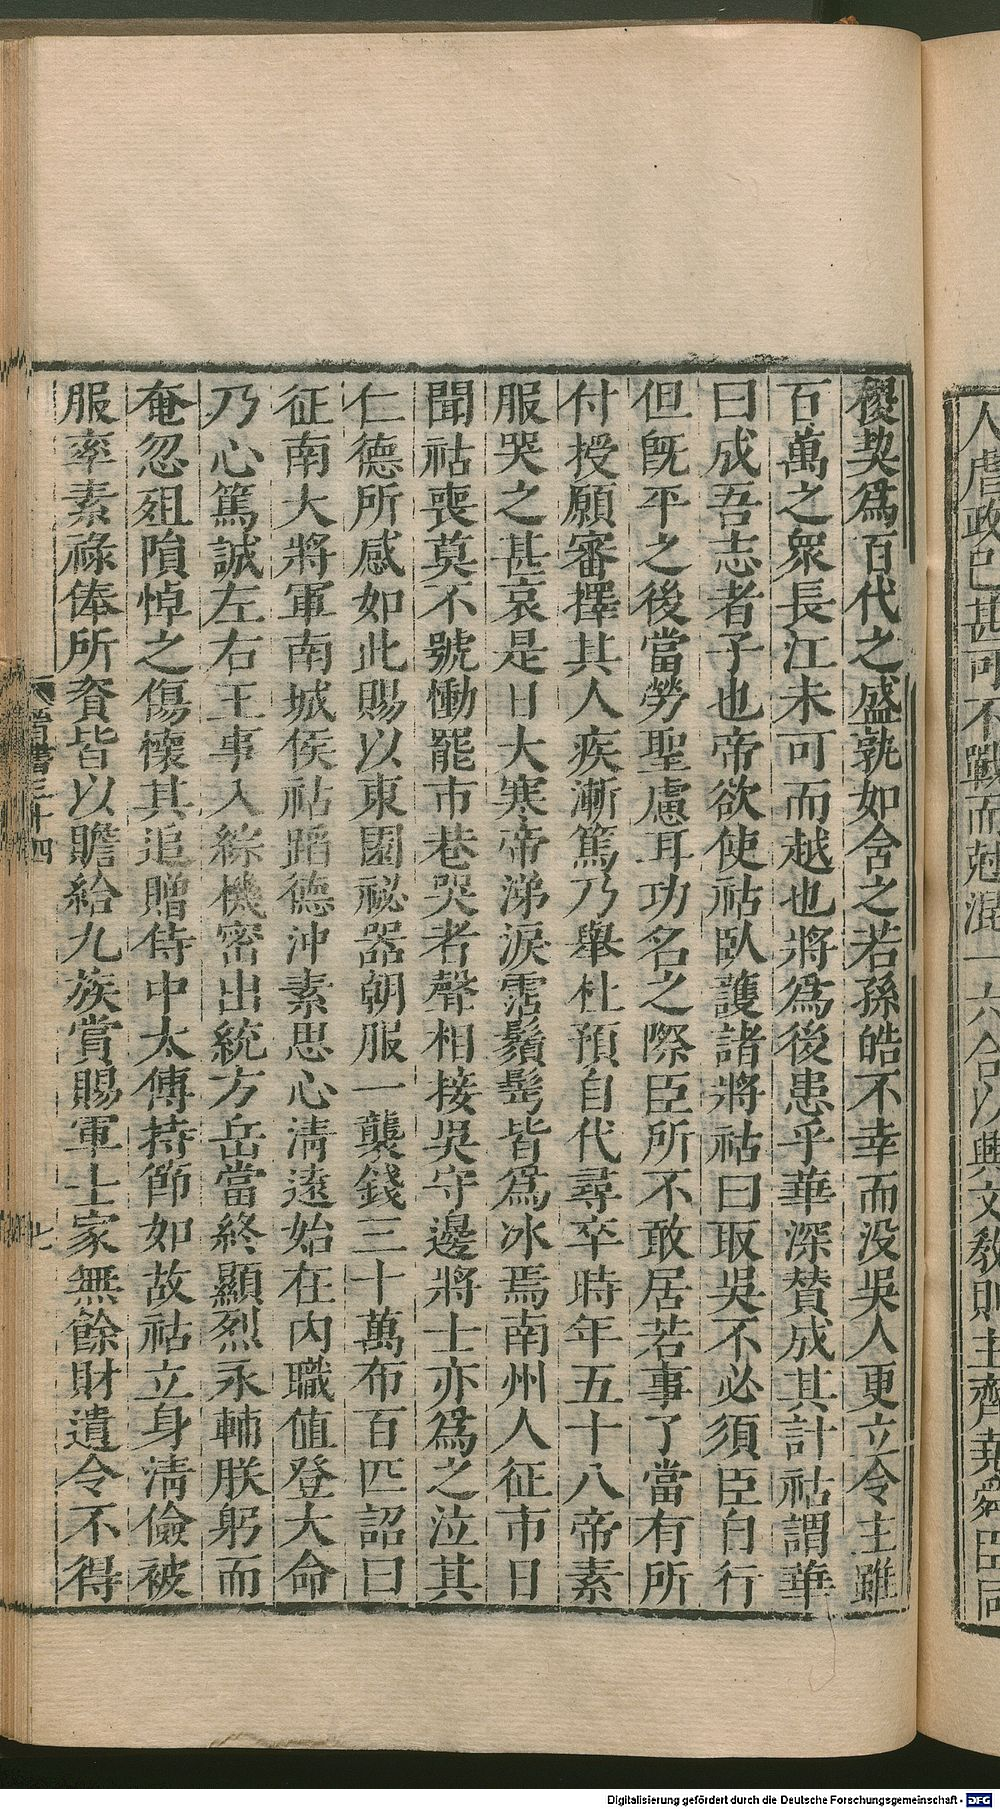 人虐政已甚可不戰而尅混一六合以興文教則主齊堯舜臣同
稷契爲百代之盛孰如舍之若孫皓不幸而没吳人更立令主雖
百萬之衆長江未可而越也將爲後患乎華深贊成其計祜謂華
曰成吾志者子也帝欲使祜臥護諸將祜曰取吳不必須臣自行
但旣平之後當勞聖慮耳功名之際臣所不敢居若事了當有所
付授願審擇其人疾漸篤乃舉杜預自代尋卒時年五十八帝素
服哭之甚哀是日大寒帝涕淚霑鬚鬂皆爲冰焉南州人征市日
聞祜喪莫不號慟罷市巷哭者聲相接吳守邊將士亦爲之泣其
仁德所感如此賜以東園祕器朝服一襲錢三十萬布百匹詔曰
征南大將軍南城侯祜蹈德沖素思心清遠始在內職值登大命
乃心篤誠左右王事入綜機密出統方岳當終顯烈永輔朕躬而
奄忽殂隕悼之傷懷其追贈侍中太傅持節如故祜立身清儉被
服率素祿俸所資皆以贍給九族賞賜軍士家無餘財遺令不得
晉書三十四
七
Digitalisierung gefördert durch die Deutsche Forschungsgemeinschaft - DFG